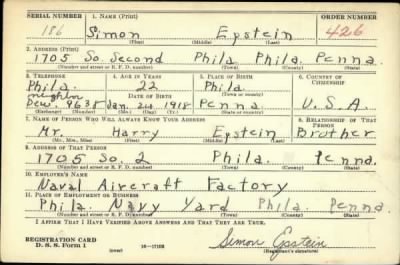 SERIAL NUMBER 1. NAME (Print) ORDER NUMBER
186 Simon Epstein 426
(First) (Middle) (Last)
2. ADDRESS (Print)
1705 So. Second Phila. Phila. Penna.
(Number and street or R. F. D. number) (Town) (County) (State)
3. TELEPHONE 4. AGE IN YEARS 5. PLACE OF BIRTH 6. COUNTRY OF CITIZENSHIP
Phila. 22 Phila.
DATE OF BIRTH (Town or county)
Dew. 9638 Jan. 24 1918 Penna. U.S.A.
(Exchange) (Number) (Mo.) (Day) (Yr.) (State or country)
7. NAME OF PERSON WHO WILL ALWAYS KNOW YOUR ADDRESS 8. RELATIONSHIP OF THAT PERSON
Mr. Harry Epstein Brother
(Mr., Mrs., Miss) (First) (Middle) (Last)
9. ADDRESS OF THAT PERSON
1705 So. 2 Phila. Penna.
(Number and street or R. F. D. number) (Town) (County) (State)
10. EMPLOYER'S NAME
Naval Aircraft Factory
11. PLACE OF EMPLOYMENT OR BUSINESS
Phila. Navy Yard Phila. Penna.
(Number and street or R. F. D. number) (Town) (County) (State)
I AFFIRM THAT I HAVE VERIFIED ABOVE ANSWERS AND THAT THEY ARE TRUE.
REGISTRATION CARD
D. S. S. Form 1 (over) Simon Epstein
(Registrant's signature)